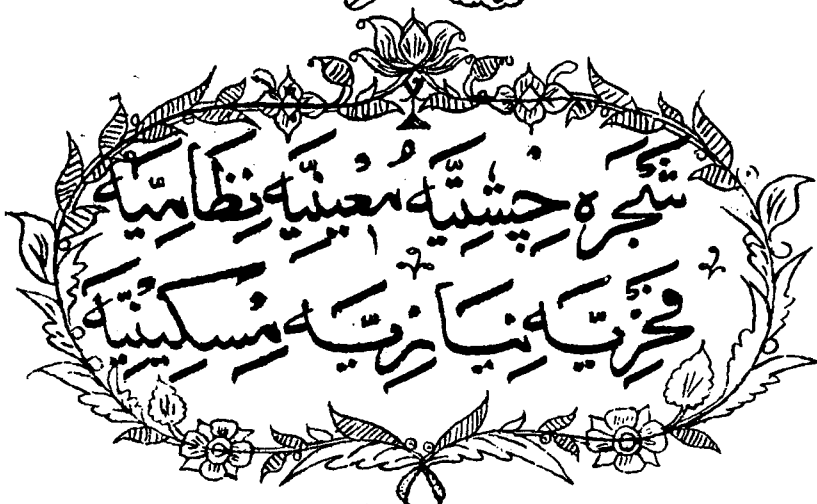 شَجَرَہ چِشتِیَّہ مُعِینِیَّہ نِظَامِیَّہ
فَخَرِیَّہ نِیَازِیَّہ مِسکِینِیَّہ